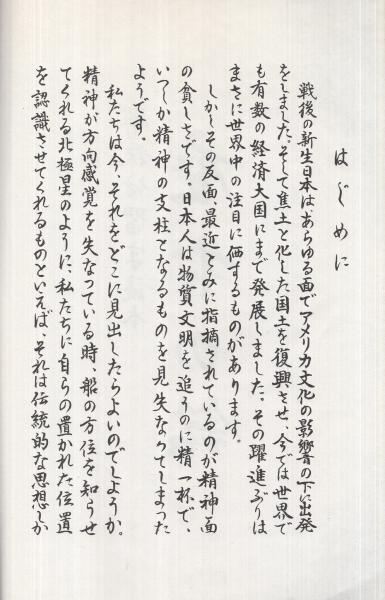 はじめに
戦後の新生日本はあらゆる面でアメリカ文化の影響の下に出発
をしました。そして焦土と化した国土を復興させ、今では世界で
も有数の経済大国にまで発展しました。その躍進ぶりは
まさに世界中の注目に価するものがあります。
しかしその反面、最近とみに指摘されているのが精神面
の貧しさです。日本人は物質文明を追うのに精一杯で、
いつしか精神の支柱となるものを見失なってしまった
ようです。
私たちは今、それをどこに見出したらよいのでしょうか。
精神が方向感覚を失なっている時、船の方位を知らせ
てくれる北極星のように、私たちに自らの置かれた位置
を認識させてくれるものといえば、それは伝統的な思想しか